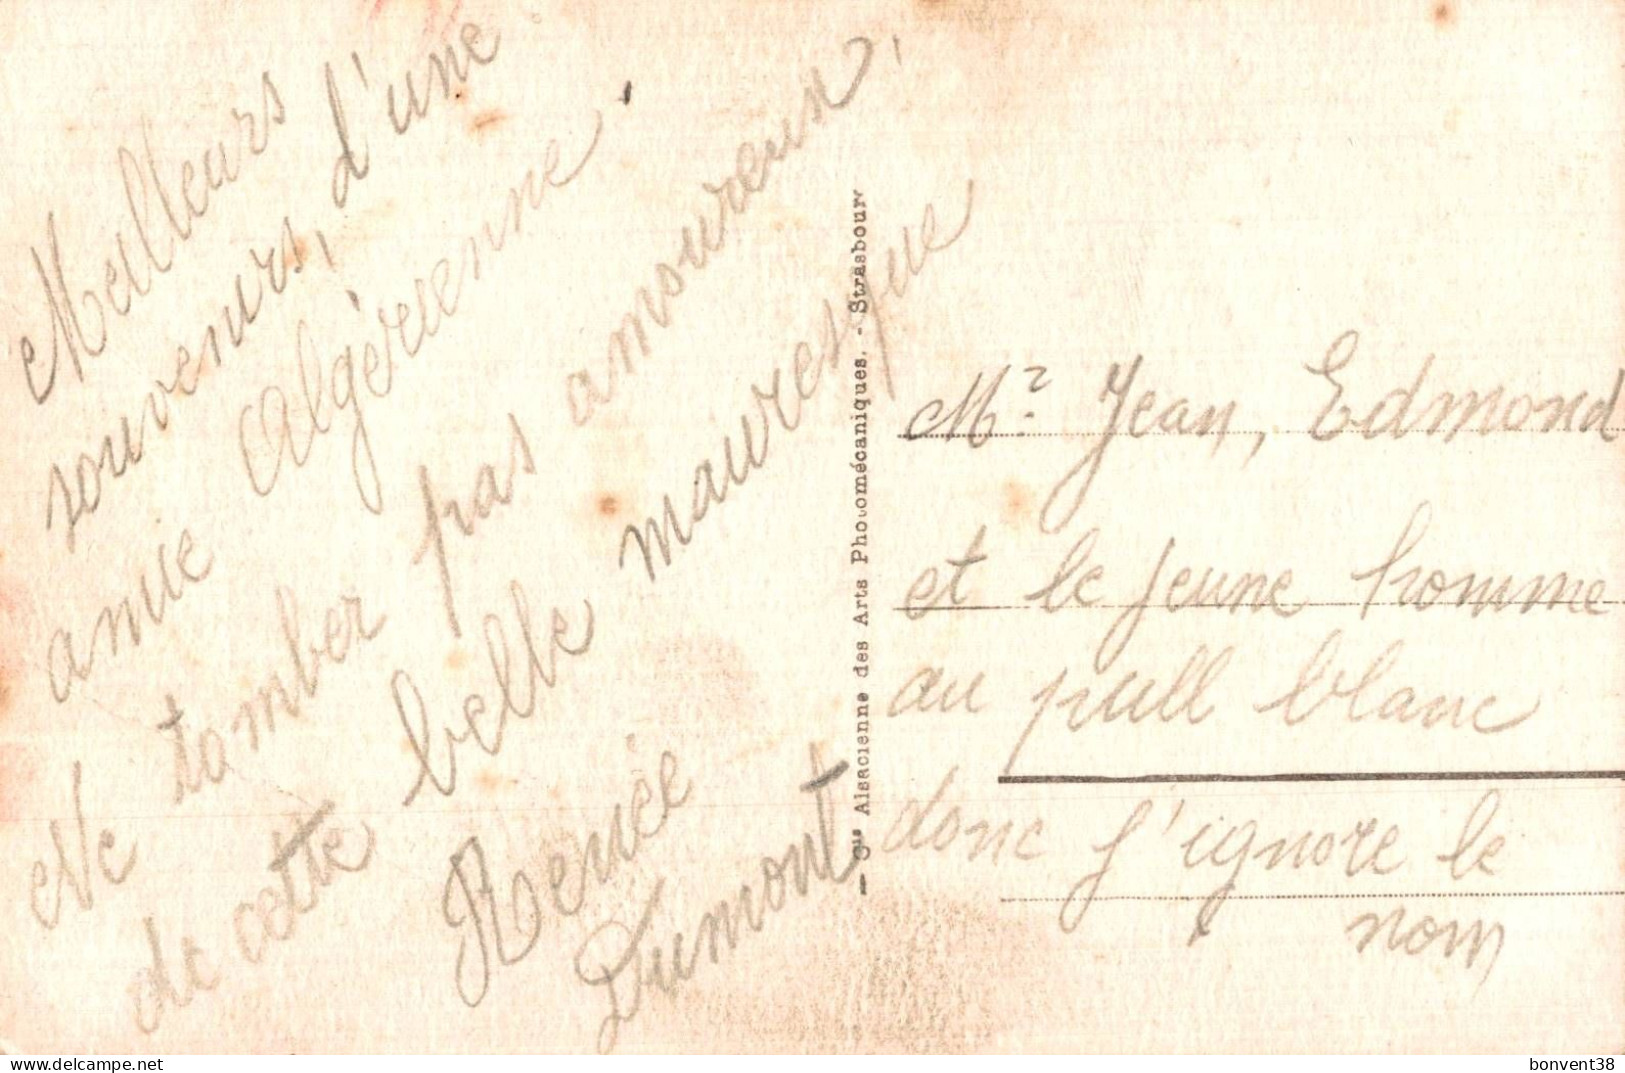 Meilleurs
souvenirs, d'une
amie Algérienne.
Ne tomber pas amoureux,
de cette belle mauresque
Renée
Dumont
— Cie Alsacienne des Arts Photomécaniques. - Strasbour
Mr. Jean, Edmond
et le jeune homme
au pull blanc
donc j'ignore le
nom
delcampe.net
bonvent38